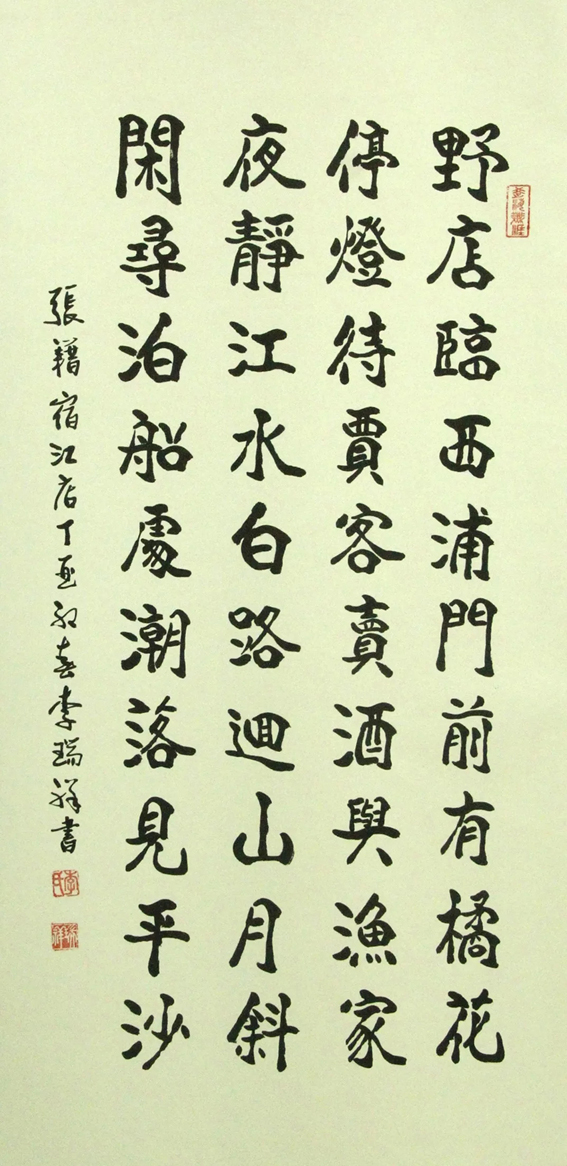 野店臨西浦門前有橘花
停燈待賈客賣酒與漁家
夜靜江水白路迴山月斜
閑尋泊船處潮落見平沙
張籍宿江店丁亥初春李瑞祥書